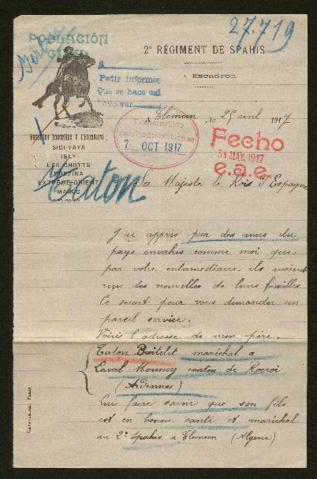 27.719
POBLACIÓN
CIVIL
2e RÉGIMENT DE SPAHIS
Escadron
A
Pedir informes
Que se hace
A Tlemcen, le 25 avril 1917
7 OCT 1917
Fecho
31 MAY. 1917
e.a.e.
SIDI-YAYA
ISLY
LES CHOTTS
EXTRÊME-ORIENT
MAROC
Caton
Sa Majesté le Roi d'Espagne
J'ai appris par des amis du
pays envahis comme moi que
par votre entremise ils avaient
reçu des nouvelles de leurs familles.
Ce serait pour vous demander un
pareil service.
Voici l'adresse de mon père.
Caton maréchal à
Laval Morency canton de Rocroi
(Ardennes)
Lui faire savoir que son fils
est en bonne santé et maréchal
au 2e Spahis à Tlemcen (Algérie)